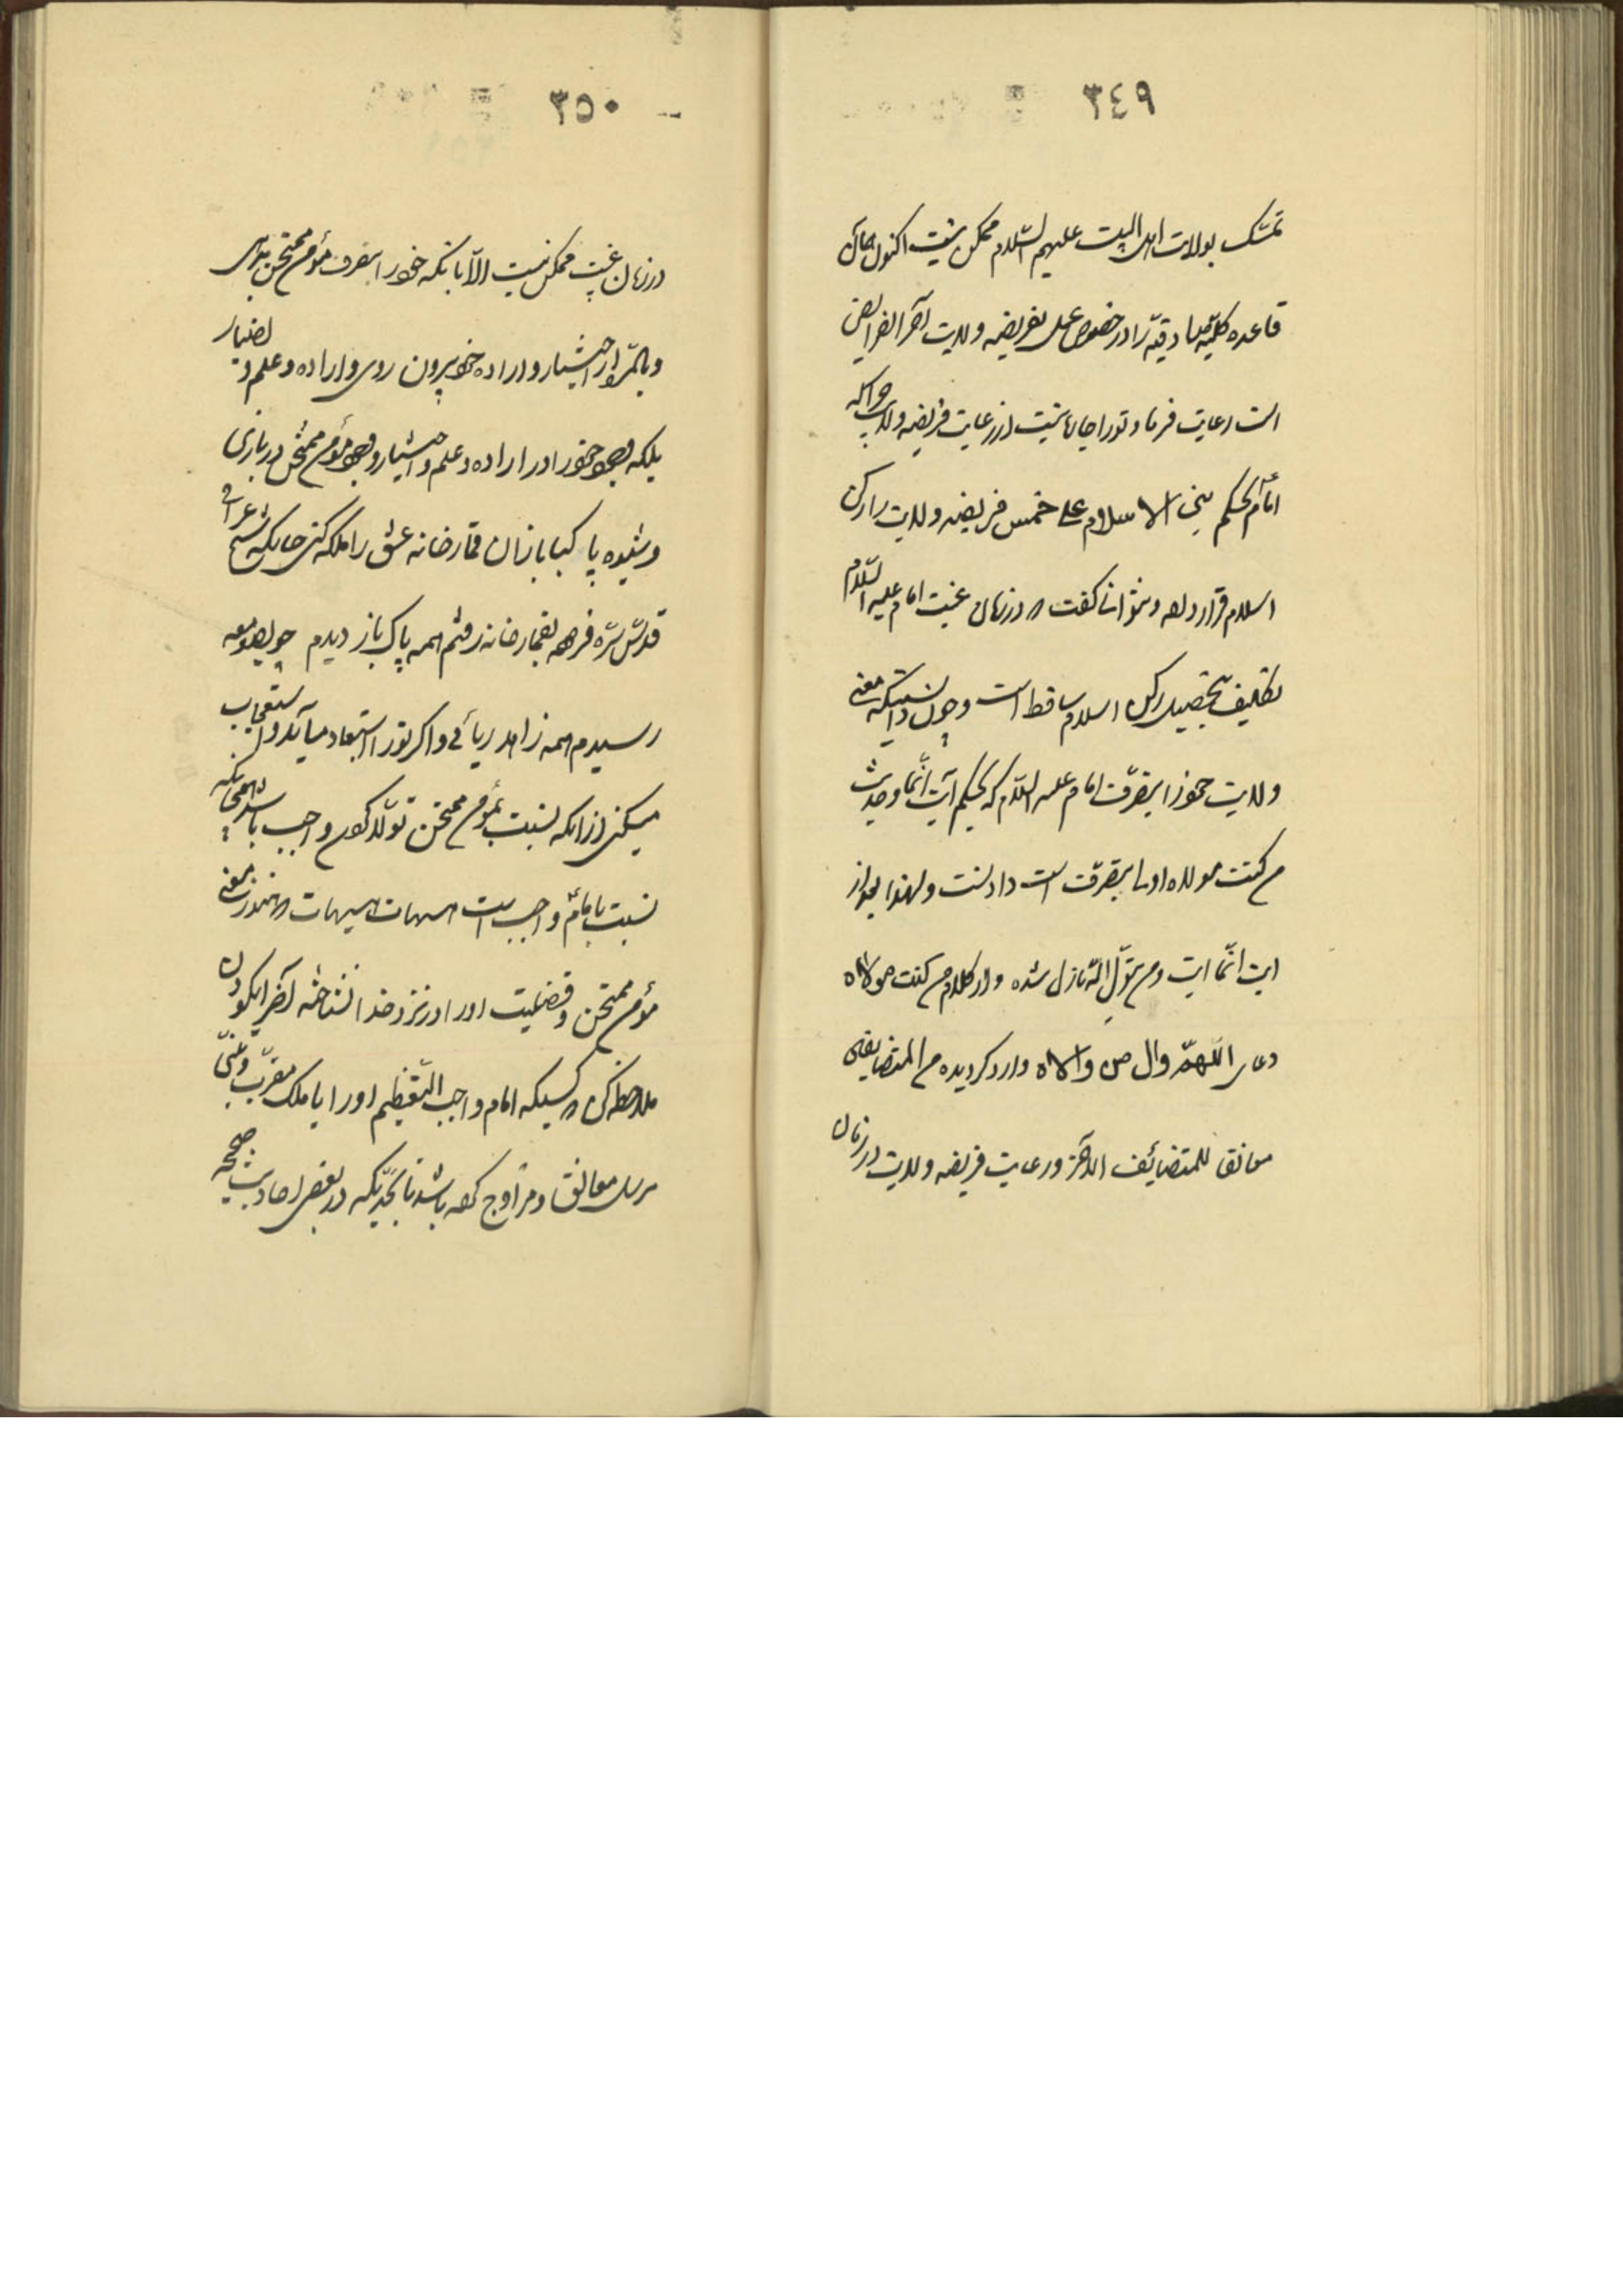 ٣٤٩
تمسّک بولایت اهل البیت علیهم السّلام ممکن نیست اکنون همان
قاعده کلیّه صادقیّه را در خصوص عمل بفریضه ولایت آخر الفرایض
است رعایت فرما و تو را چاره نیست از رعایت فریضه ولایت چرا که
امام بحکم بنی الاسلام علی خمس فریضه ولایت را رکن
اسلام قرار داده و نتوان گفت که در زمان غیبت امام علیه السّلام
تکلیف تحصیل رکن اسلام ساقط است و چون دانستیکه معنی
ولایت خود را بتصرّف امام علیه السّلام که بحکم آیت انّما و حدیث
من کنت مولاه اولی بتصرّف است دادنست و لهذا بعد از
آیت انّما آیت و من یتولّ اللّه نازل شده و از کلام من کنت مولاه
دعای اللّهمّ وال من والاه وارد گردیده من المتضایفین
معانقا للمتضائف الآخر و رعایت فریضه ولایت در زمان
٣٥٠
در زمان غیبت ممکن نیست الّا بآنکه خود را بتصرف مؤمن ممتحن بدهی
و بالمرّه از اختیار و اراده خود بیرون روی و اراده و علم و اختیار
بلکه وجود خود را در اراده و علم و اختیار و وجود مؤمن ممتحن در بازی
و شیوه پاکبازان قمارخانه عشق را ملکه کنی چنانکه شیخ عراقی
قدّس سرّه فرموده بقمارخانه رفتم همه پاک باز دیدم چو بصومعه
رسیدم همه زاهد ریائی و اگر تو را استبعاد میآید و استعجاب
میکنی از آنکه نسبت بمؤمن ممتحن تولّا کردن واجب باشد همچنانکه
نسبت بامام واجب است هیهات هیهات که هنوز معنی
مؤمن ممتحن و فضیلت او را در نزد خدا نشناخته آخر نیکو
ملاحظه کن که کسیکه امام واجب التّعظیم او را با ملک مقرّب و نبیّ
مرسل معانق و مزاوج کرده باشد تا بحدّیکه در بعضی احادیث صحیحه